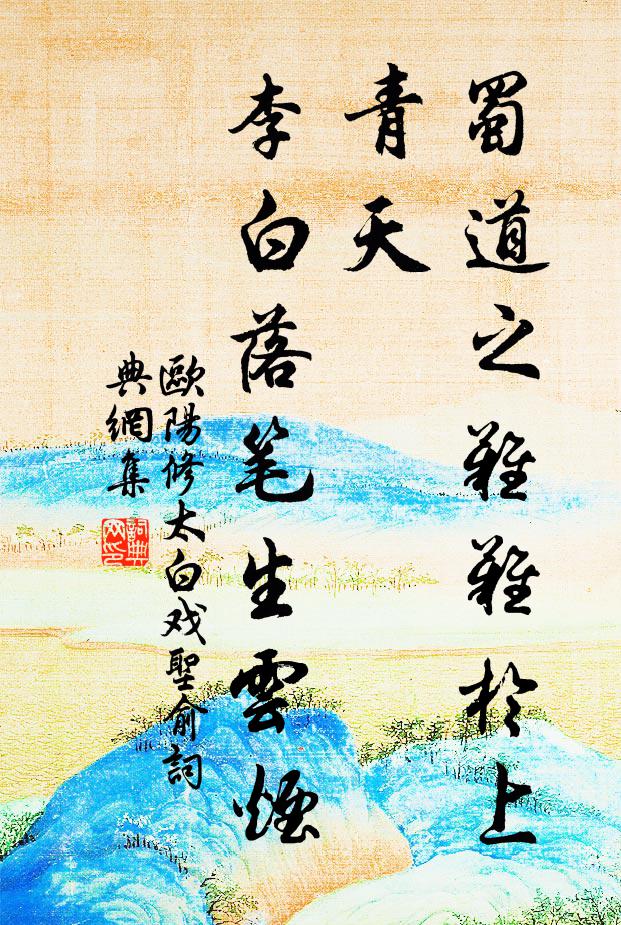 蜀道之難難於上
青天
李白落笔生雲煙
歐陽修太白戏聖俞詞
典網集
詞典网印